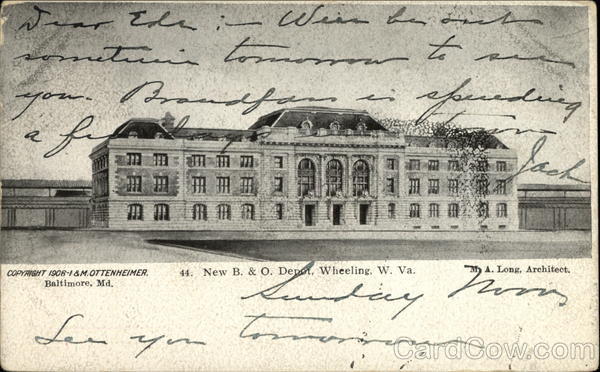 Dear Ede :- Will be out
sometime tomorrow to see
you. Brandfass is spending
a few days
Jack
COPYRIGHT 1906-I & M. OTTENHEIMER.
Baltimore, Md.
44. New B. & O. Depot, Wheeling, W. Va.
M. A. Long, Architect.
Sunday Noon
See you tomorrow
CardCow.com